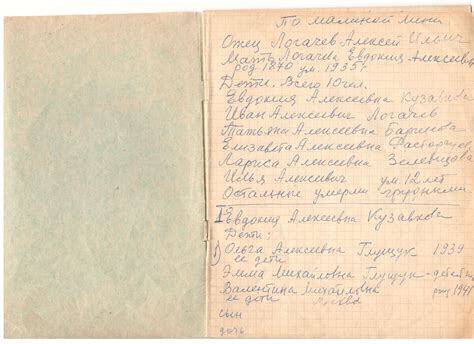 По маминой линии
Отец Логачев Алексей Ильич
Мать Логачева Евдокия Алексеевна
род 1870 ум. 1935 г
Дети. Всего 10 чел.
Евдокия Алексеевна Кузавкова
Иван Алексеевич Логачев
Татьяна Алексеевна
Елизавета Алексеевна
Лариса Алексеевна
Илья Алексеевич ум. 12 лет
Остальные умерли грудными
I Евдокия Алексеевна Кузавкова
Дети:
1) Ольга Алексеевна Глущук 1939
ее дети
Эмма Михайловна Глущук -
Валентина Михайловна 1941
ее дети Москва
сын
дочь